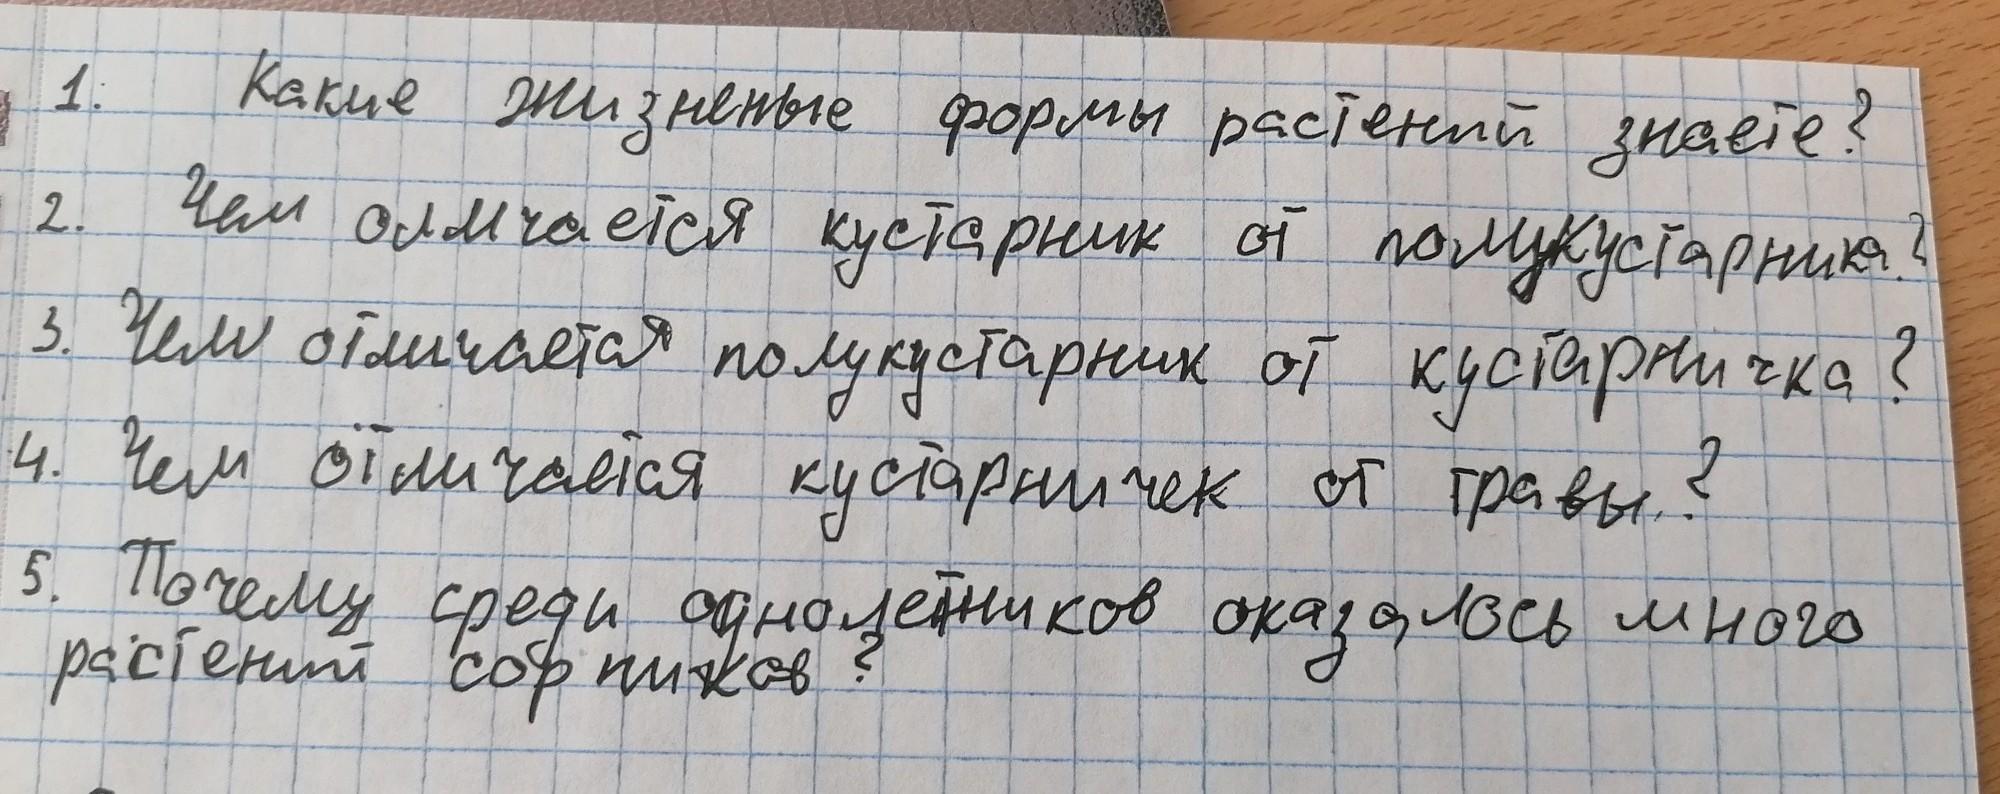 1. Какие жизненые формы растений знаете?
2. Чем отличается кустарник от полукустарника?
3. Чем отличается полукустарник от кустарничка?
4. Чем отличается кустарничек от травы?
5. Почему среди однолетников оказалось много
растений сорников?